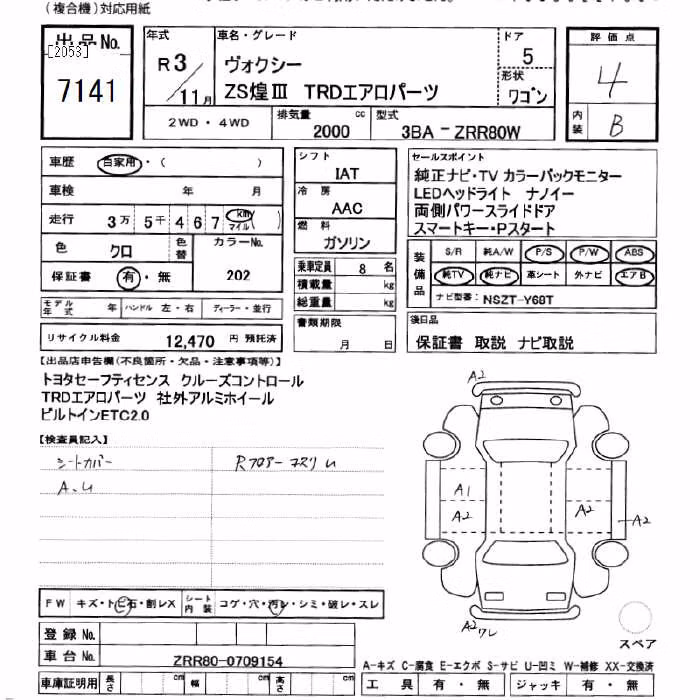 (複合機)対応用紙
出品No.
[2053]
7141
年式
R3/11月
車名・グレード
ヴォクシー
ZS煌Ⅲ TRDエアロパーツ
ドア
5
形状
ワゴン
評価点
4
内装
B
2WD・4WD
排気量
2000 cc
型式
3BA-ZRR80W
車歴 自家用・( )
車検 年 月
走行 3万5千467 km マイル( )
色 クロ
色替
カラーNo.
202
保証書 有・無
シフト
IAT
冷房
AAC
燃料
ガソリン
乗車定員 8 名
積載量 kg
総重量 kg
セールスポイント
純正ナビ・TV カラーバックモニター
LEDヘッドライト ナノイー
両側パワースライドドア
スマートキー・Pスタート
装備品
S/R 純A/W P/S P/W ABS
純TV 純ナビ 革シート 外ナビ エアB
ナビ型番: NSZT-Y68T
モデル年式 年 ハンドル 左・右 ディーラー・並行
リサイクル料金 12,470 円 預託済
書類期限
月 日
後日品
保証書 取説 ナビ取説
【出品店申告欄(不良箇所・欠品・注意事項等)】
トヨタセーフティセンス クルーズコントロール
TRDエアロパーツ 社外アルミホイール
ビルトインETC2.0
【検査員記入】
シートカバー
A.U
Rフロアーコスリ U
A2
A1
A2
A2
A2
A2 ワレ
FW キズ・トビ石・割レX
シート内装 コゲ・穴・汚レ・シミ・破レ・スレ
登録No.
車台No. ZRR80-0709154
スペア
A-キズ C-腐食 E-エクボ S-サビ U-凹ミ W-補修 XX-交換済
車庫証明用 長さ cm 幅 cm 高さ cm
工具 有・無 ジャッキ 有・無